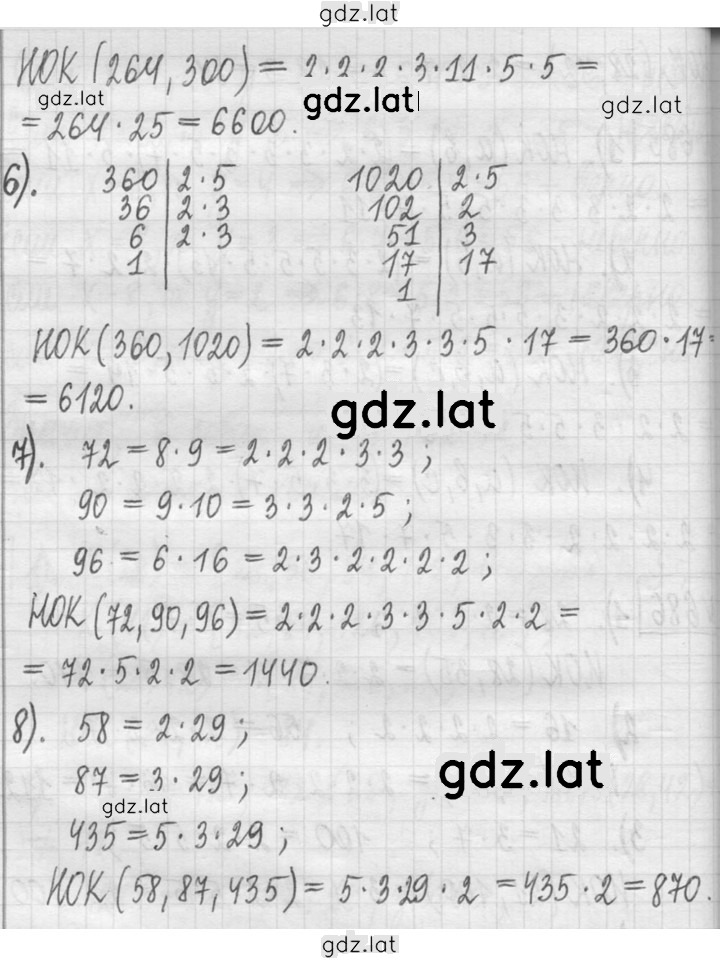 gdz.lat
НОК (264, 300) = 2·2·2·3·11·5·5 =
gdz.lat gdz.lat gdz.lat
= 264·25 = 6600.
6). 360 | 2·5 1020 | 2·5
36 | 2·3 102 | 2
6 | 2·3 51 | 3
1 | 17 | 17
1 |
НОК (360, 1020) = 2·2·2·3·3·5·17 = 360·17=
= 6120.
gdz.lat
7). 72 = 8·9 = 2·2·2·3·3 ;
90 = 9·10 = 3·3·2·5 ;
96 = 6·16 = 2·3·2·2·2·2 ;
НОК (72, 90, 96) = 2·2·2·3·3·5·2·2 =
= 72·5·2·2 = 1440.
8). 58 = 2·29 ;
87 = 3·29 ;
gdz.lat
gdz.lat
435 = 5·3·29 ;
НОК (58, 87, 435) = 5·3·29·2 = 435·2 = 870.
gdz.lat